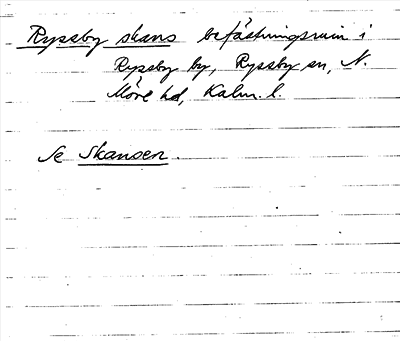 Ryssby skans befästningsruin i
Ryssby by, Ryssby sn, N.
Möre hd, Kalm. l.
Se Skansen.